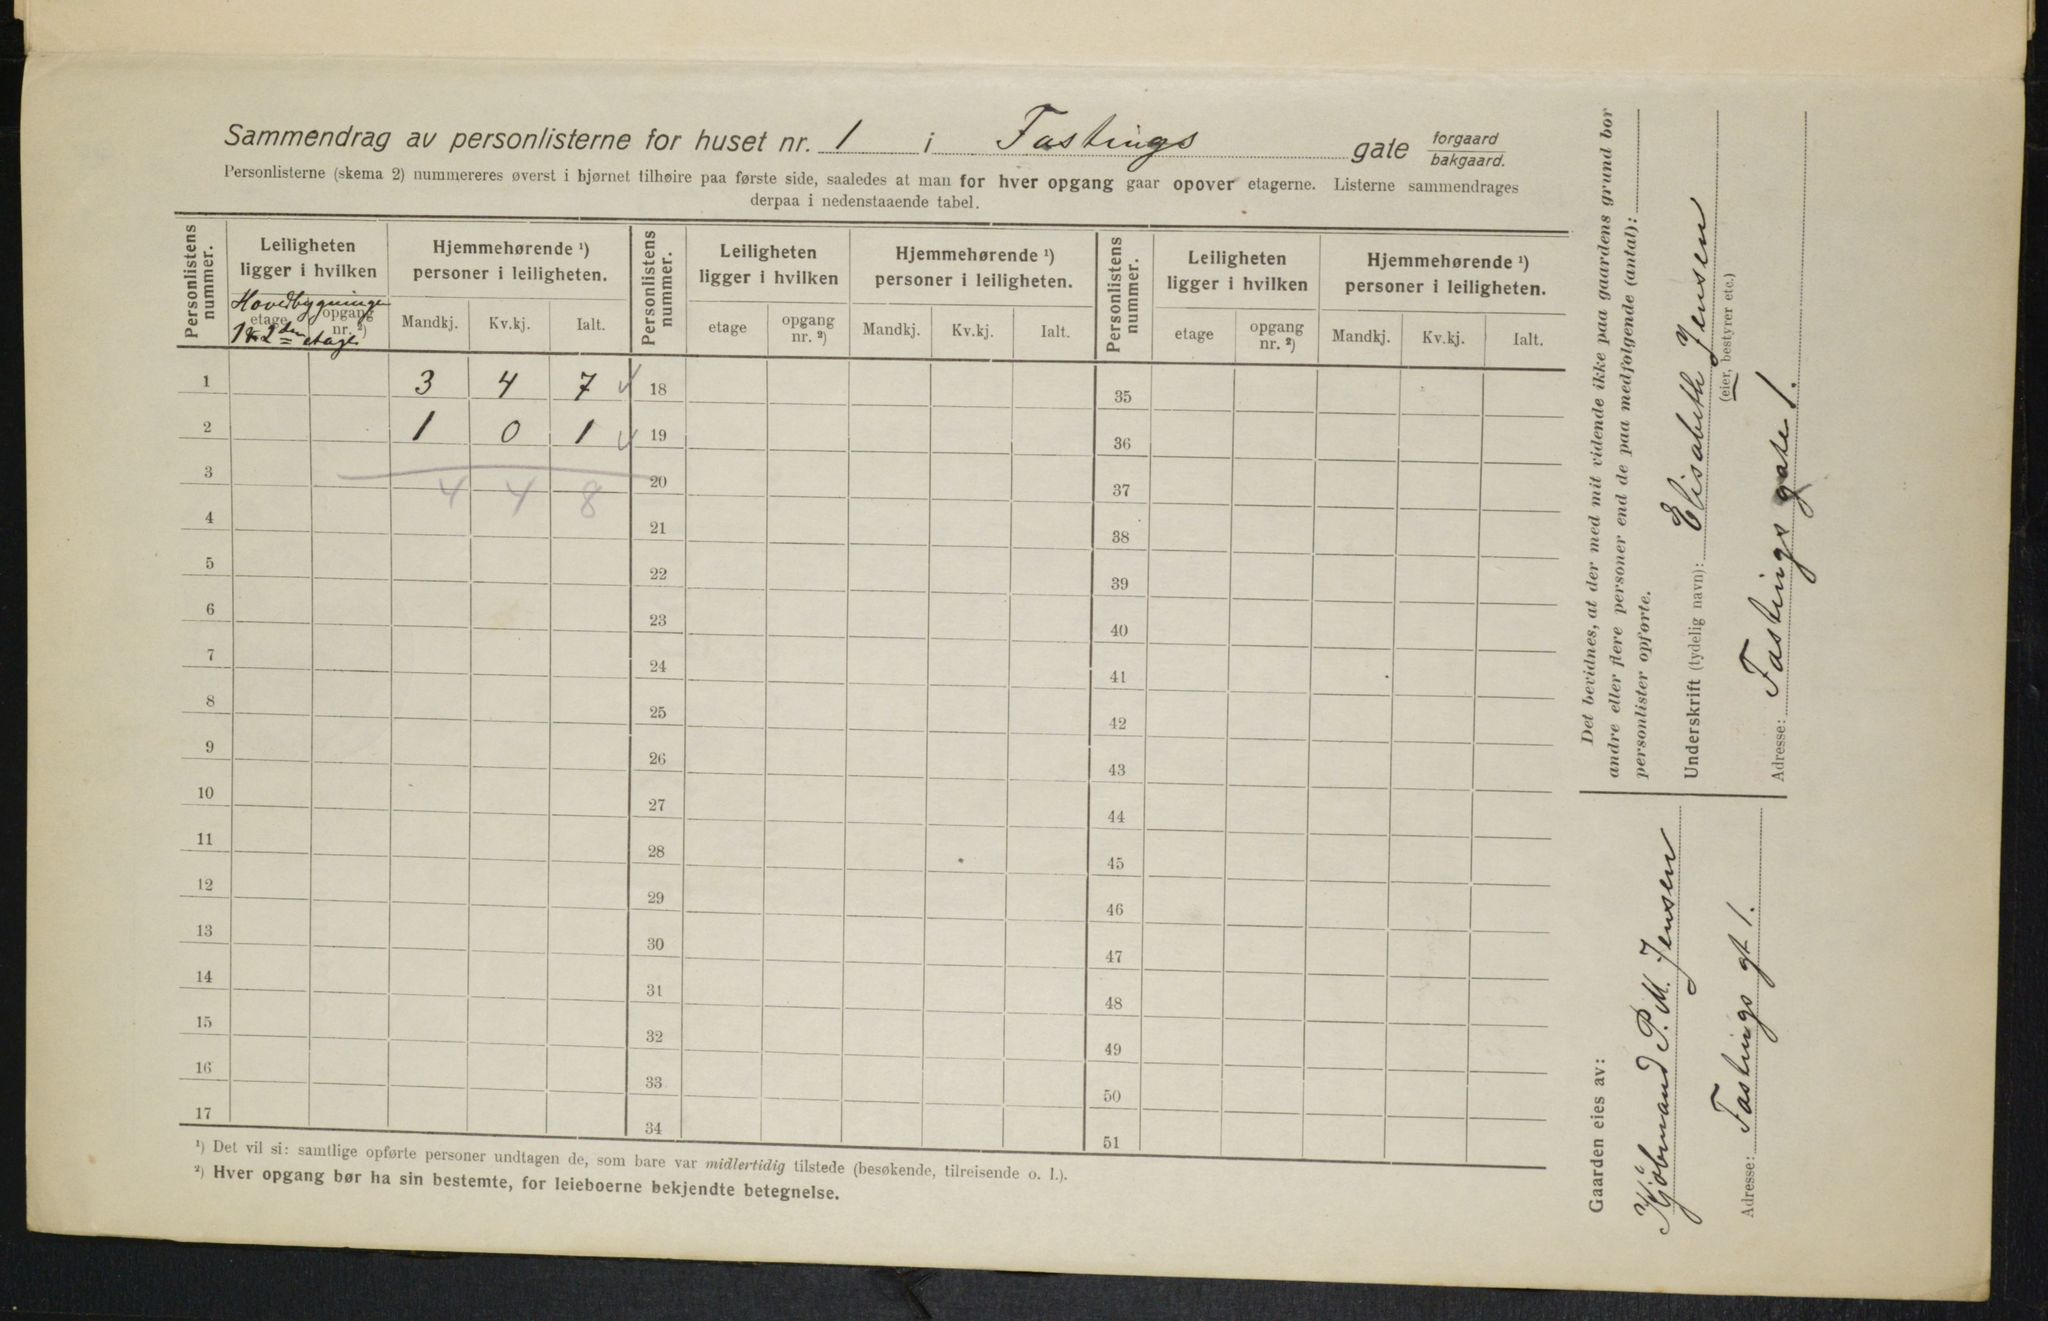 Sammendrag av personlisterne for huset nr. 1 i Fastings gate forgaard bakgaard.
Personlisterne (skema 2) nummereres øverst i hjørnet tilhøire paa første side, saaledes at man for hver opgang gaar opover etagerne. Listerne sammendrages
derpaa i nedenstaaende tabel.
Personlistens nummer. Leiligheten ligger i hvilken Hjemmehørende ¹) personer i leiligheten. Personlistens nummer. Leiligheten ligger i hvilken Hjemmehørende ¹) personer i leiligheten. Personlistens nummer. Leiligheten ligger i hvilken Hjemmehørende ¹) personer i leiligheten.
etage opgang nr. ²) Mandkj. Kv.kj. Ialt. etage opgang nr. ²) Mandkj. Kv.kj. Ialt. etage opgang nr. ²) Mandkj. Kv.kj. Ialt.
Hovedbygningen
1 & 2den etage
1 3 4 7 18 35
2 1 0 1 19 36
3 4 4 8 20 37
4 21 38
5 22 39
6 23 40
7 24 41
8 25 42
9 26 43
10 27 44
11 28 45
12 29 46
13 30 47
14 31 48
15 32 49
16 33 50
17 34 51
¹) Det vil si: samtlige opførte personer undtagen de, som bare var midlertidig tilstede (besøkende, tilreisende o. l.).
²) Hver opgang bør ha sin bestemte, for leieboerne bekjendte betegnelse.
Det bevidnes, at der med mit vidende ikke paa gaardens grund bor
andre eller flere personer end de paa medfølgende (antal):
personlister opførte.
Underskrift (tydelig navn): Elisabeth Jensen
(eier, bestyrer etc.)
Adresse: Fastings gate 1.
Gaarden eies av:
Kjöbmand P. M. Jensen
Adresse: Fastings gt 1.